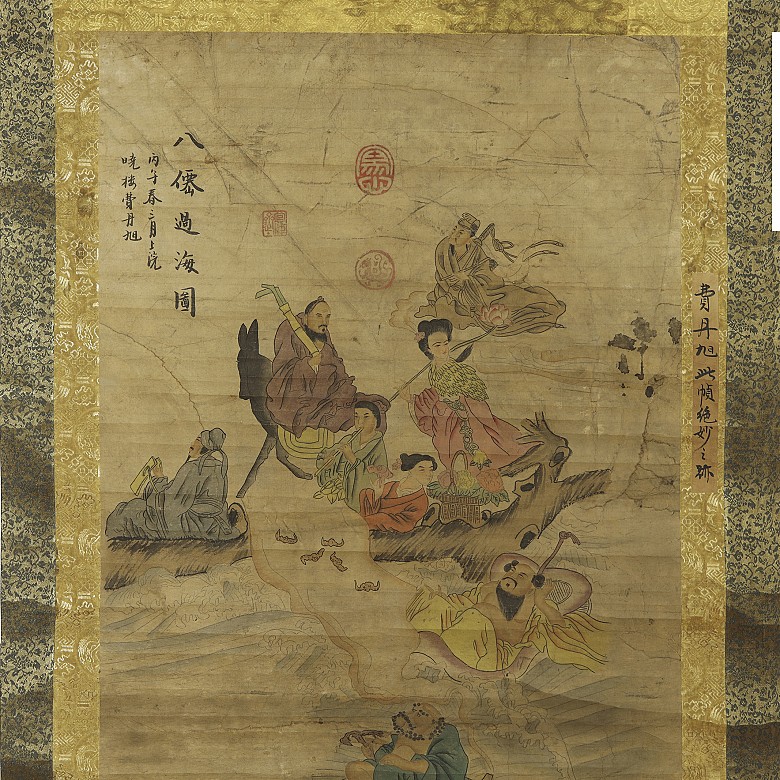 八僊過海圖
丙午春二月上浣
曉樓費丹旭
費丹旭此幀絕妙之跡